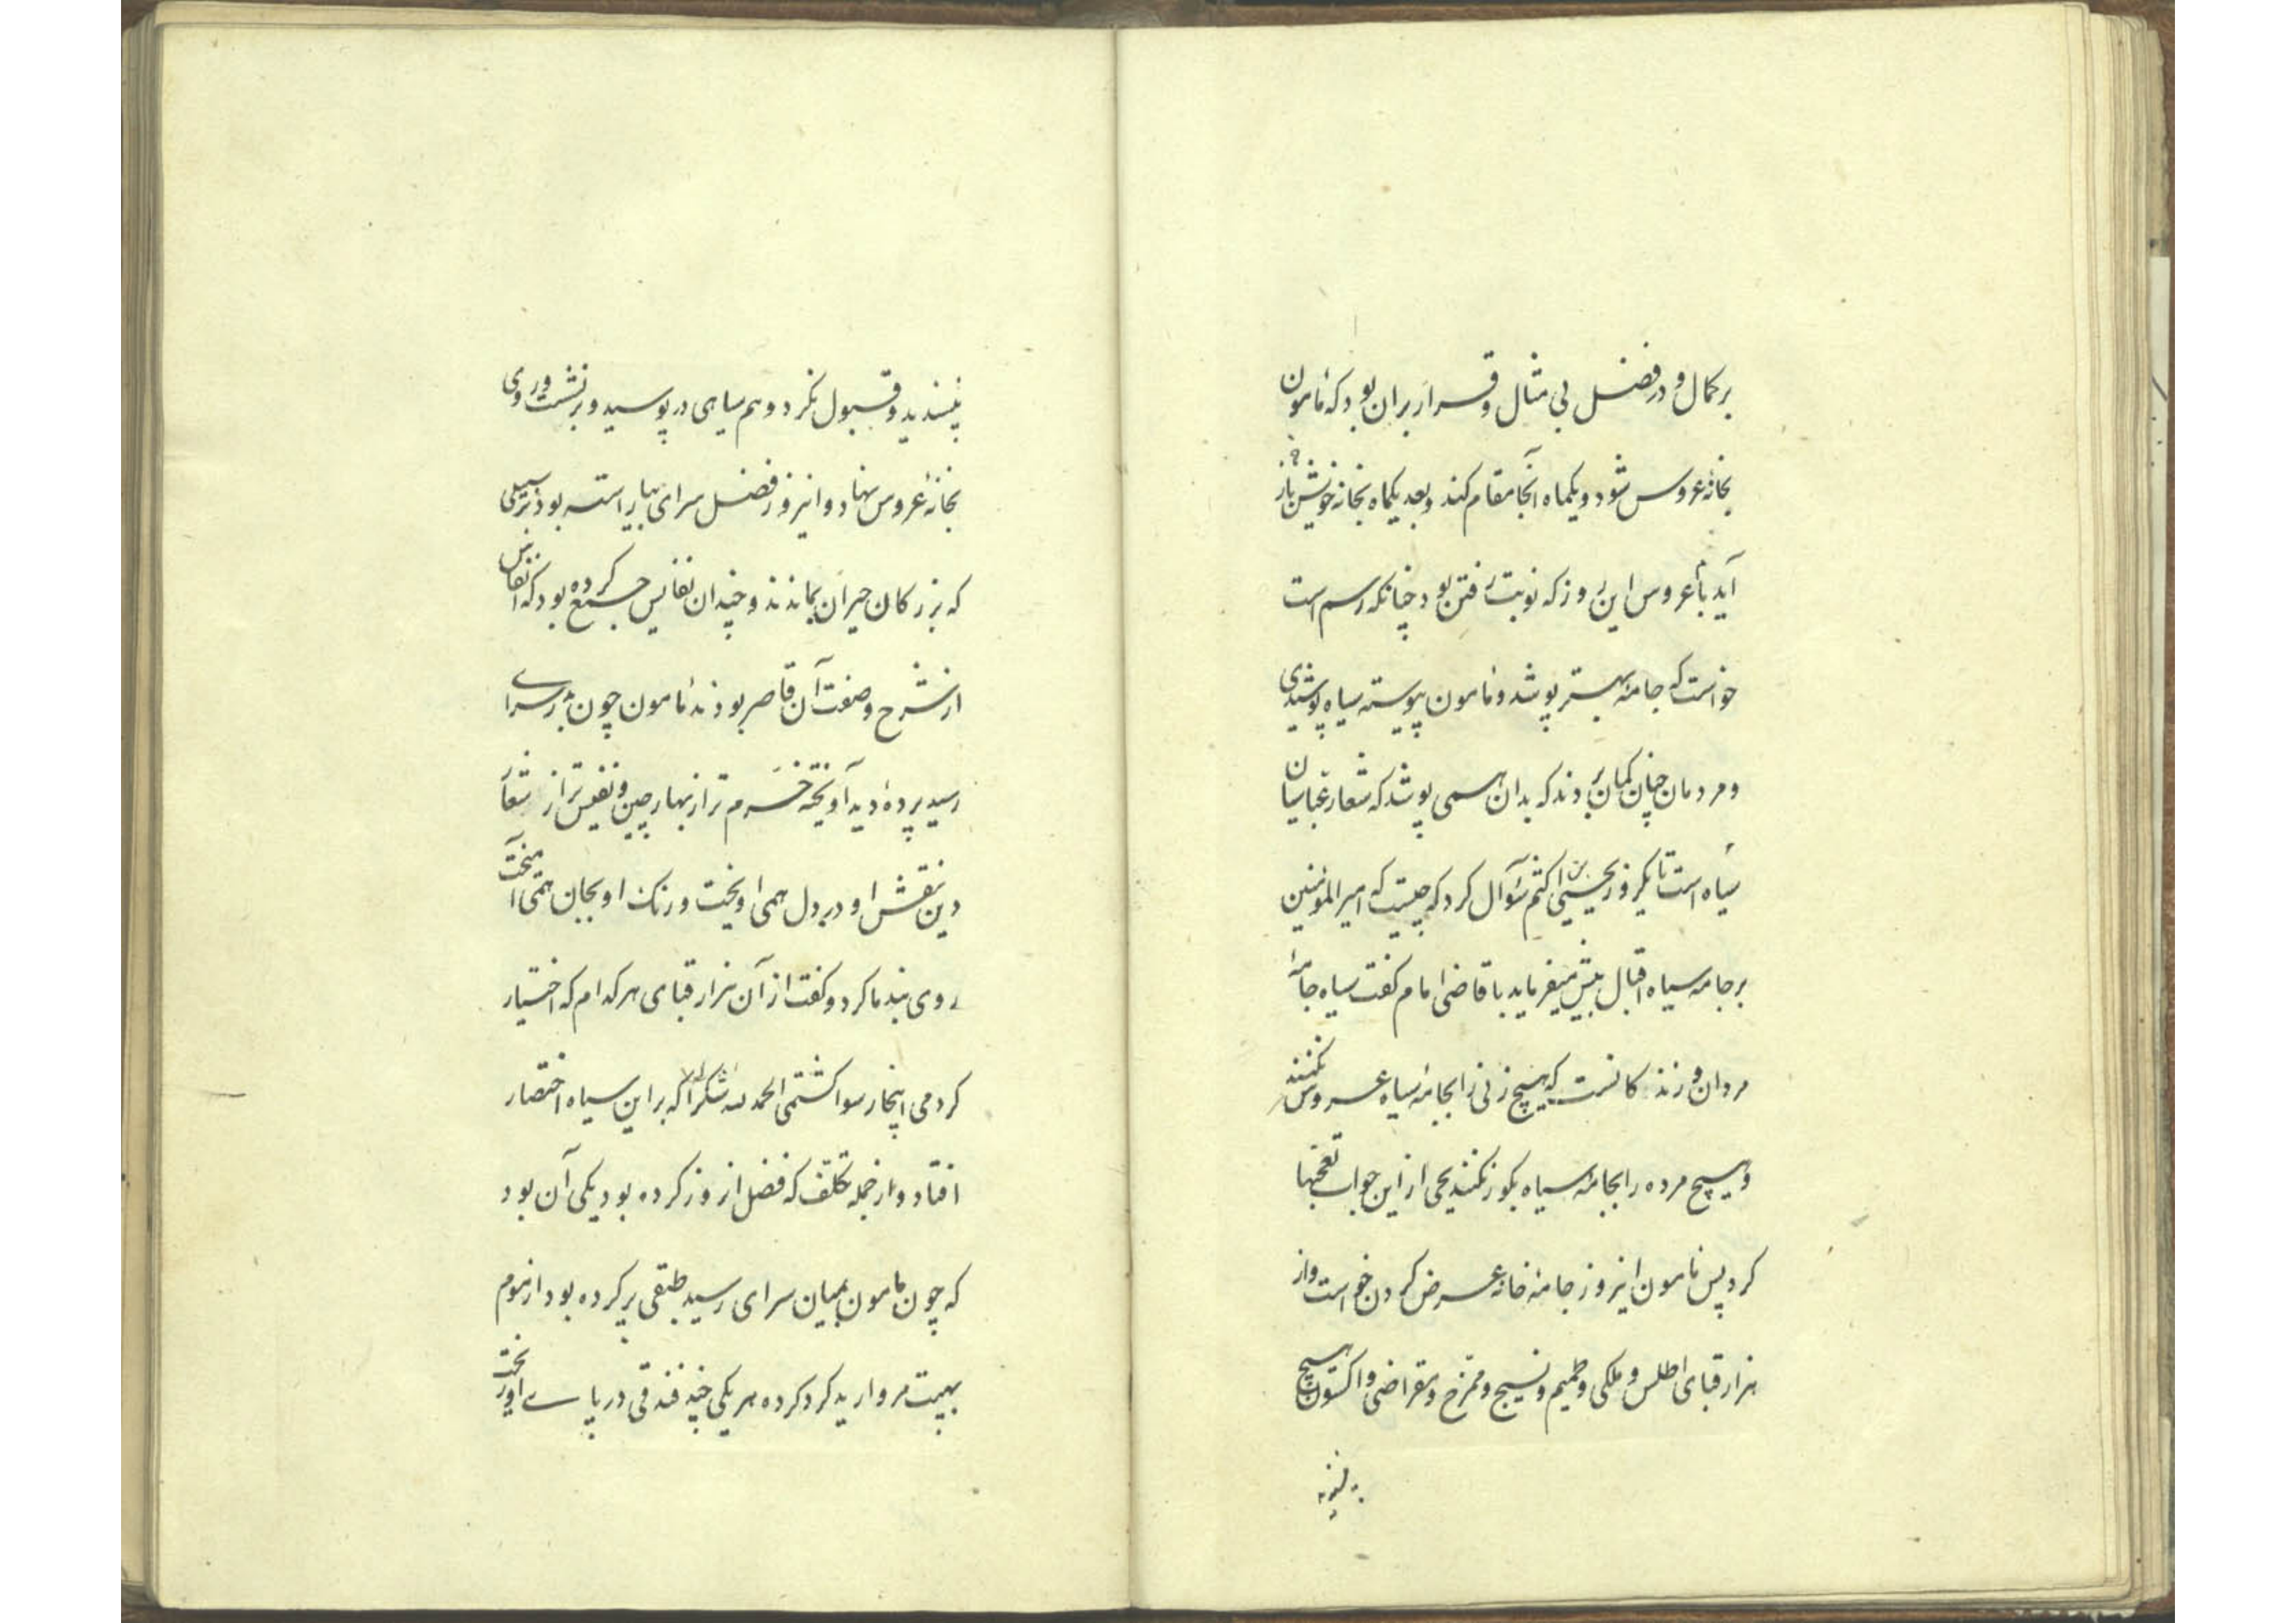 بر کمال و در فضل بی مثال و قرار بران بود که مامون
بخانۀ عروس شود و یکماه آنجا مقام کند و بعد یکماه بخانه خویش باز
آید با عروس این روز که نوبت رفتن بود چنانکه رسم است
خواست که جامۀ بهتر پوشد و مامون پیوسته سیاه پوشیدی
و مردمان چنان گمان بردند که بدان همی پوشد که شعار عباسیان
سیاه است تا یکروز یحیی بن اکثم سوآل کرد که چیست که امیر المومنین
بر جامه سیاه اقبال بیش میفرماید با قاضی امام گفت سیاه جامۀ
مردان و زندکانست که هیچ زنی را بجامۀ سیاه عروس نکنند
و هیچ مرده را بجامۀ سیاه بگور نکنند یحیی از این جواب تعجبها
کرد پس مامون اینروز جامۀ خانه عرض کردن خواست و از
هزار قبای اطلس و ملکی و طمیم و نسیج و ممزج و مقراضی و اکسون هیچ
بپسندید و قبول نکرد و هم سیاهی در پوسید و برنشست و روی
بخانۀ عروس نهاد و اینروز فضل سرای بیاراسته بود بر سبیلی
که بزرکان حیران بماندند و چندان نفایس جمع کرده بود که انفاس
از شرح و صفت آن قاصر بودند مامون چون بدر سرای
رسید پردۀ دید آویخته خرم تر از بهار چین و نفیس تر از شعار
دین نقش او در دل همی اویخت و رنک او بجان همی آمیخت
روی بندما کرد و گفت از آن هزار قبای هر کدام که اختیار
کردمی اینجا رسوا گشتمی الحمد لله شکرا که بر این سیاه اختصار
افتاد و از جمله تکلف که فضل انروز کرده بود یکی آن بود
که چون مامون بمیان سرای رسید طبقی پر کرده بود از موم
بهیت مروارید گرد کرده هر یکی چند فندقی در پای او ریخت